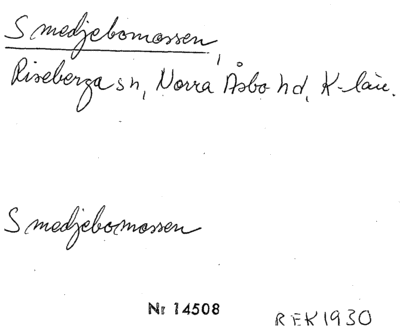 Smedjebomossen,
Riseberga sn, Norra Åsbo hd, K-län.
Smedjebomossen
Nr 14508
REK 1930